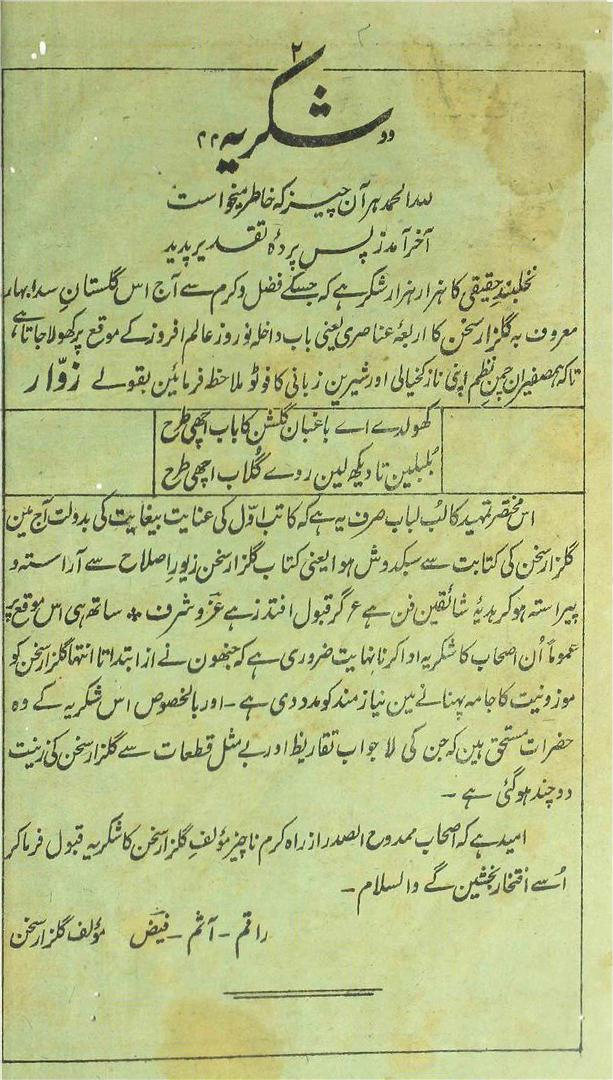 ۲
"شکریہ"
للہ الحمد ہر آن چیز کہ خاطر میخواست
آخر آمد ز پس پردۂ تقدیر پدید
نخلبند حقیقی کا ہزار ہزار شکر ہے کہ جسکے فضل و کرم سے آج اس گلستانِ سدا بہار
معروف بہ گلزار سخن کا اربعۂ عناصری یعنی باب داخلہ نوروز عالم افروز کے موقع پر کھولا جاتا ہے،
تاکہ ہمصفیرانِ چمنِ نظم اپنی نازکخیالی اور شیرین زبانی کا فوٹو ملاحظہ فرمائین بقولے زوّار
کھولدے اے باغبان گلشن کا باب اچھی طرح
بُلبلین تا دیکھ لین روے گُلاب اچھی طرح
اس مختصر تمہید کا لُب لباب صرف یہ ہے کہ کاتبِ اوّل کی عنایت بیغایت کی بدولت آج مین
گلزار سخن کی کتابت سے سبکدوش ہوا یعنی کتاب گلزار سخن زیورِ اصلاح سے آراستہ و
پیراستہ ہو کر ہدیۂ شائقین فن ہے ؏ گر قبول افتد زہے عز و شرف * ساتھ ہی اس موقع پر
عموماً اُن اصحاب کا شکریہ ادا کرنا نہایت ضروری ہے کہ جنھون نے از ابتدا تا انتہا گلزار سخن کو
موزونیت کا جامہ پہنانے مین نیاز مند کو مدد دی ہے ۔ اور بالخصوص اس شکریہ کے وہ
حضرات مستحق ہین کہ جن کی لا جواب تقاریظ اور بے مثل قطعات سے گلزار سخن کی زینت
دوچند ہو گئی ہے ۔
امید ہے کہ اصحاب ممدوح الصدر از راہ کرم ناچیز مؤلفِ گلزار سخن کا شکریہ قبول فرما کر
اُسے افتخار بخشین گے والسلام ۔
راقم ۔ آثم ۔ فیض مؤلف گلزار سخن